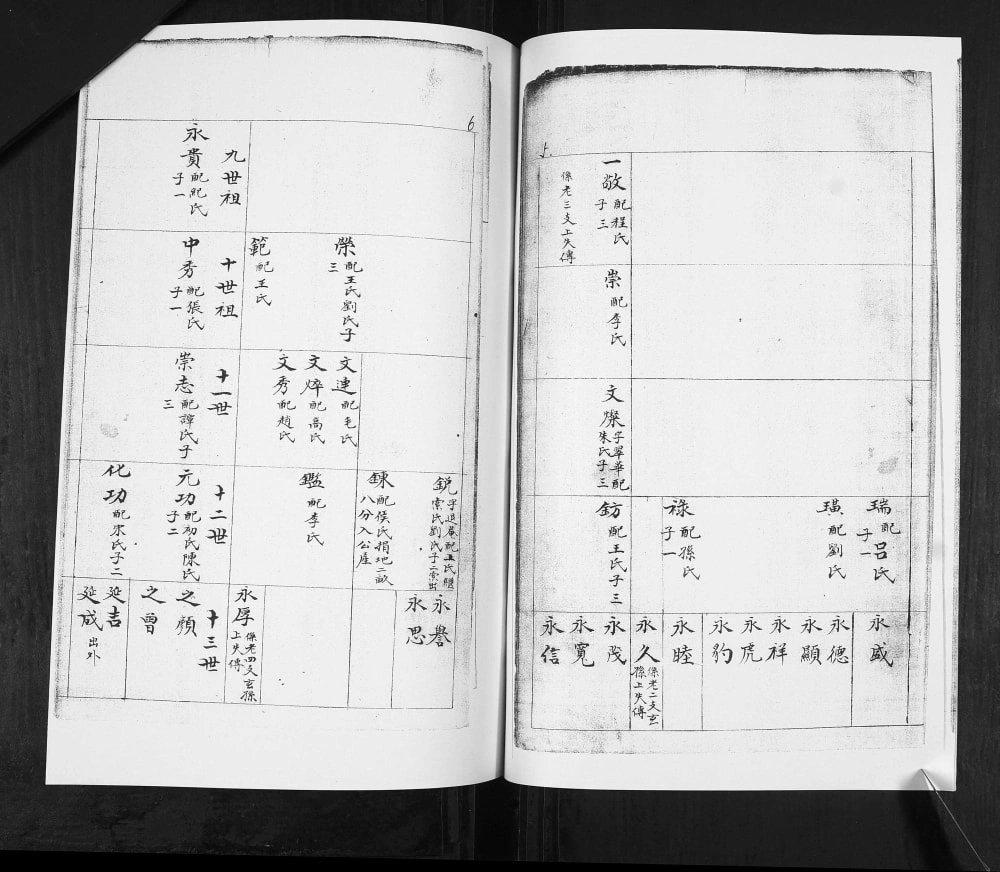 5.
一敬 配程氏 子三
係老三支上失傳
崇 配李氏
文燦 字翠華配朱氏子三
瑞 配呂氏 子一
璜 配劉氏
祿 配孫氏 子一
鈁 配王氏子三
永盛
永德
永顯
永祥
永虎
永豹
永睦
永久 係老二支玄孫上失傳
永茂
永寬
永信
6
榮 配王氏劉氏子三
範 配王氏
文連 配毛氏
文焠 配高氏
文秀 配趙氏
銳 字道菴配王氏繼索氏劉氏子二索出
鍊 配侯氏捐地二畝八分入公産
鑑 配李氏
永譽
永思
永厚 係老四支玄孫上失傳
九世祖
永貴 配紀氏 子一
十世祖
中秀 配張氏 子一
十一世
崇志 配譚氏子三
十二世
元功 配初氏陳氏 子二
化功 配宋氏子二
十三世
之頎
之曾
延吉
延成 出外